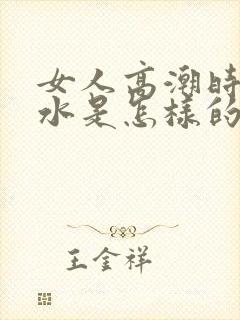 女人高潮时
水是怎样的
王金祥